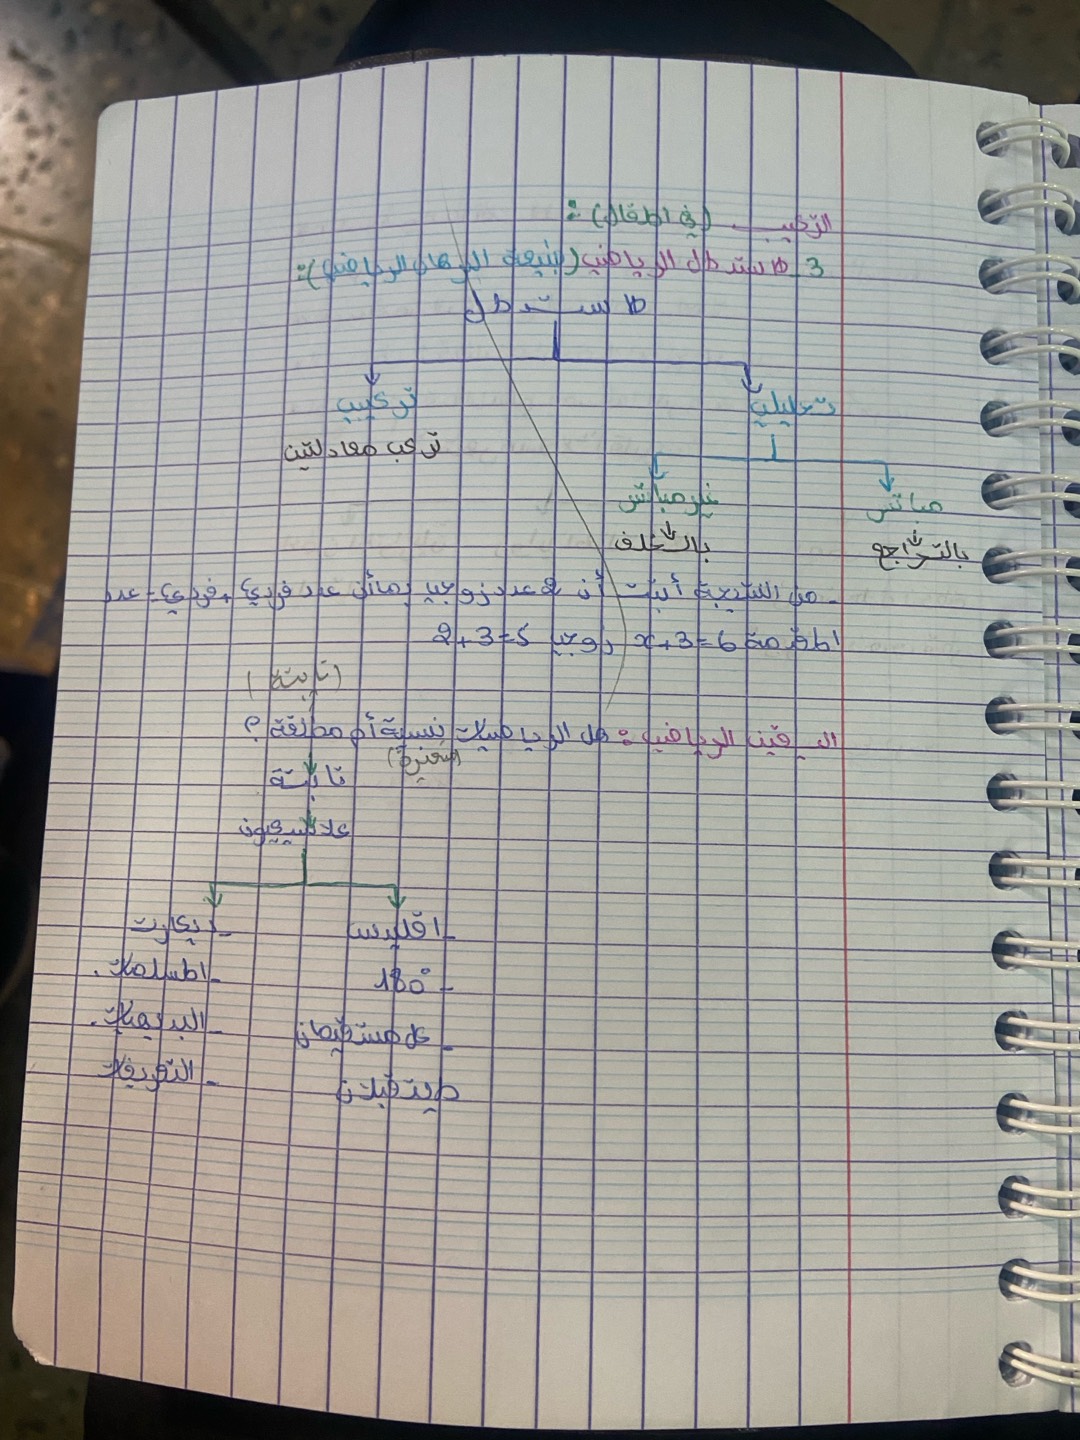 التركيب (في المقال):
3 الاستدلال الرياضي (طبيعة البرهان الرياضي):
الاستدلال
تحليلي تركيبي
تركب معادلتين
مباشر غير مباشر
بالتراجع بالخلف
- من النتيجة أثبت أن 2 عدد زوجي بما أن عدد فردي + فردي = عدد
المقدمة x+3=6 زوجي 2+3=5
(ثابتة)
اليقين الرياضي: هل الرياضيات نسبية أم مطلقة؟
(متغيرة)
ثابتة
كلاسيكيون
- اقليدس - ديكارت
- 180° - المسلمات.
- كل مستقيمان - البديهيات.
- التعريفات